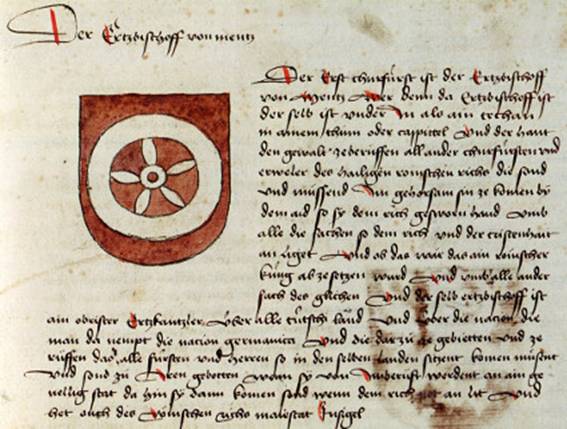 Der Ertzbischoff von mentz
Der Erst churfürst ist der Ertzbischoff
von Mentz Wer denn da Ertzbischoff ist
der selb ist under In also ain techan
in ainem thům oder cappittel Und der haut
den gewalt ze berüffen all ander churfürsten und
erweler des hailigen römschen richs die sond
und müssend Im gehorsam sin ze komen by
dem aid so sy dem rich gesworn hand Umb
alle die sachen so dem rich und der cristenhait
an liget Und ob das wär das ain römscher
kung ab ze setzen wurd Und umb alle ander
sach des glichen Und der selb ertzbischoff ist
ain obrister Ertzkantzler Uber alle tütsche land Und über die nacion die
man da nempt die nacion germanica Und die dar zů ze gebietten und ze
rüffen das alle fürsten und herren so in den selben landen sitzent komen müsent
Und sond zů Iren gebotten wann sy von Im berüfft werdent an ain ge
nellig stat da hin sy dann komen sond wenn dem rich not an lit Und
het ouch des römschen richs maiestat Insigel